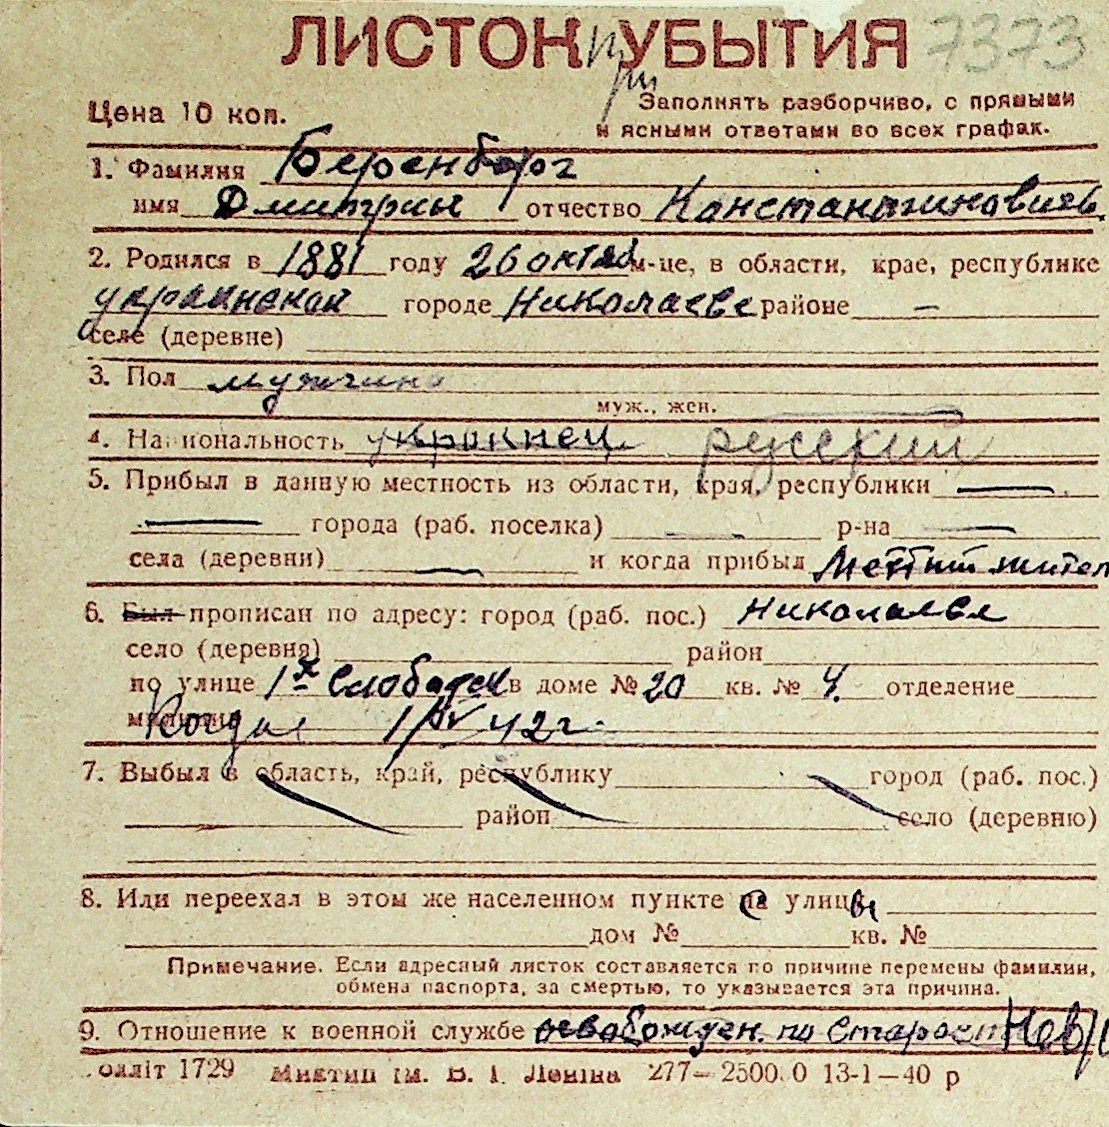 ЛИСТОК УБЫТИЯ 7373
при
Цена 10 коп.
Заполнять разборчиво, с прямыми
и ясными ответами во всех графах.
1. Фамилия Беренборг
имя Дмитрий отчество Константинович
2. Родился в 1881 году 26 октяб м-це, в области, крае, республике
украинской городе Николаеве районе —
селе (деревне)
3. Пол мужчина
муж., жен.
4. Национальность украинец русский
5. Прибыл в данную местность из области, края, республики —
— города (раб. поселка) — р-на —
села (деревни) — и когда прибыл Местный жител
6. Был прописан по адресу: город (раб. пос.) Николаеве
село (деревня) район
по улице 1я Слободск в доме № 20 кв. № 4. отделение
милиции Когда 1/IV 42 г.
7. Выбыл в область, край, республику город (раб. пос.)
район село (деревню)
8. Или переехал в этом же населенном пункте с улицы
дом № кв. №
Примечание. Если адресный листок составляется по причине перемены фамилии,
обмена паспорта, за смертью, то указывается эта причина.
9. Отношение к военной службе освобожден. по старост Нев/о
олліт 1729 Миктип ім. В. І. Леніна 277—2500.0 13-1—40 р